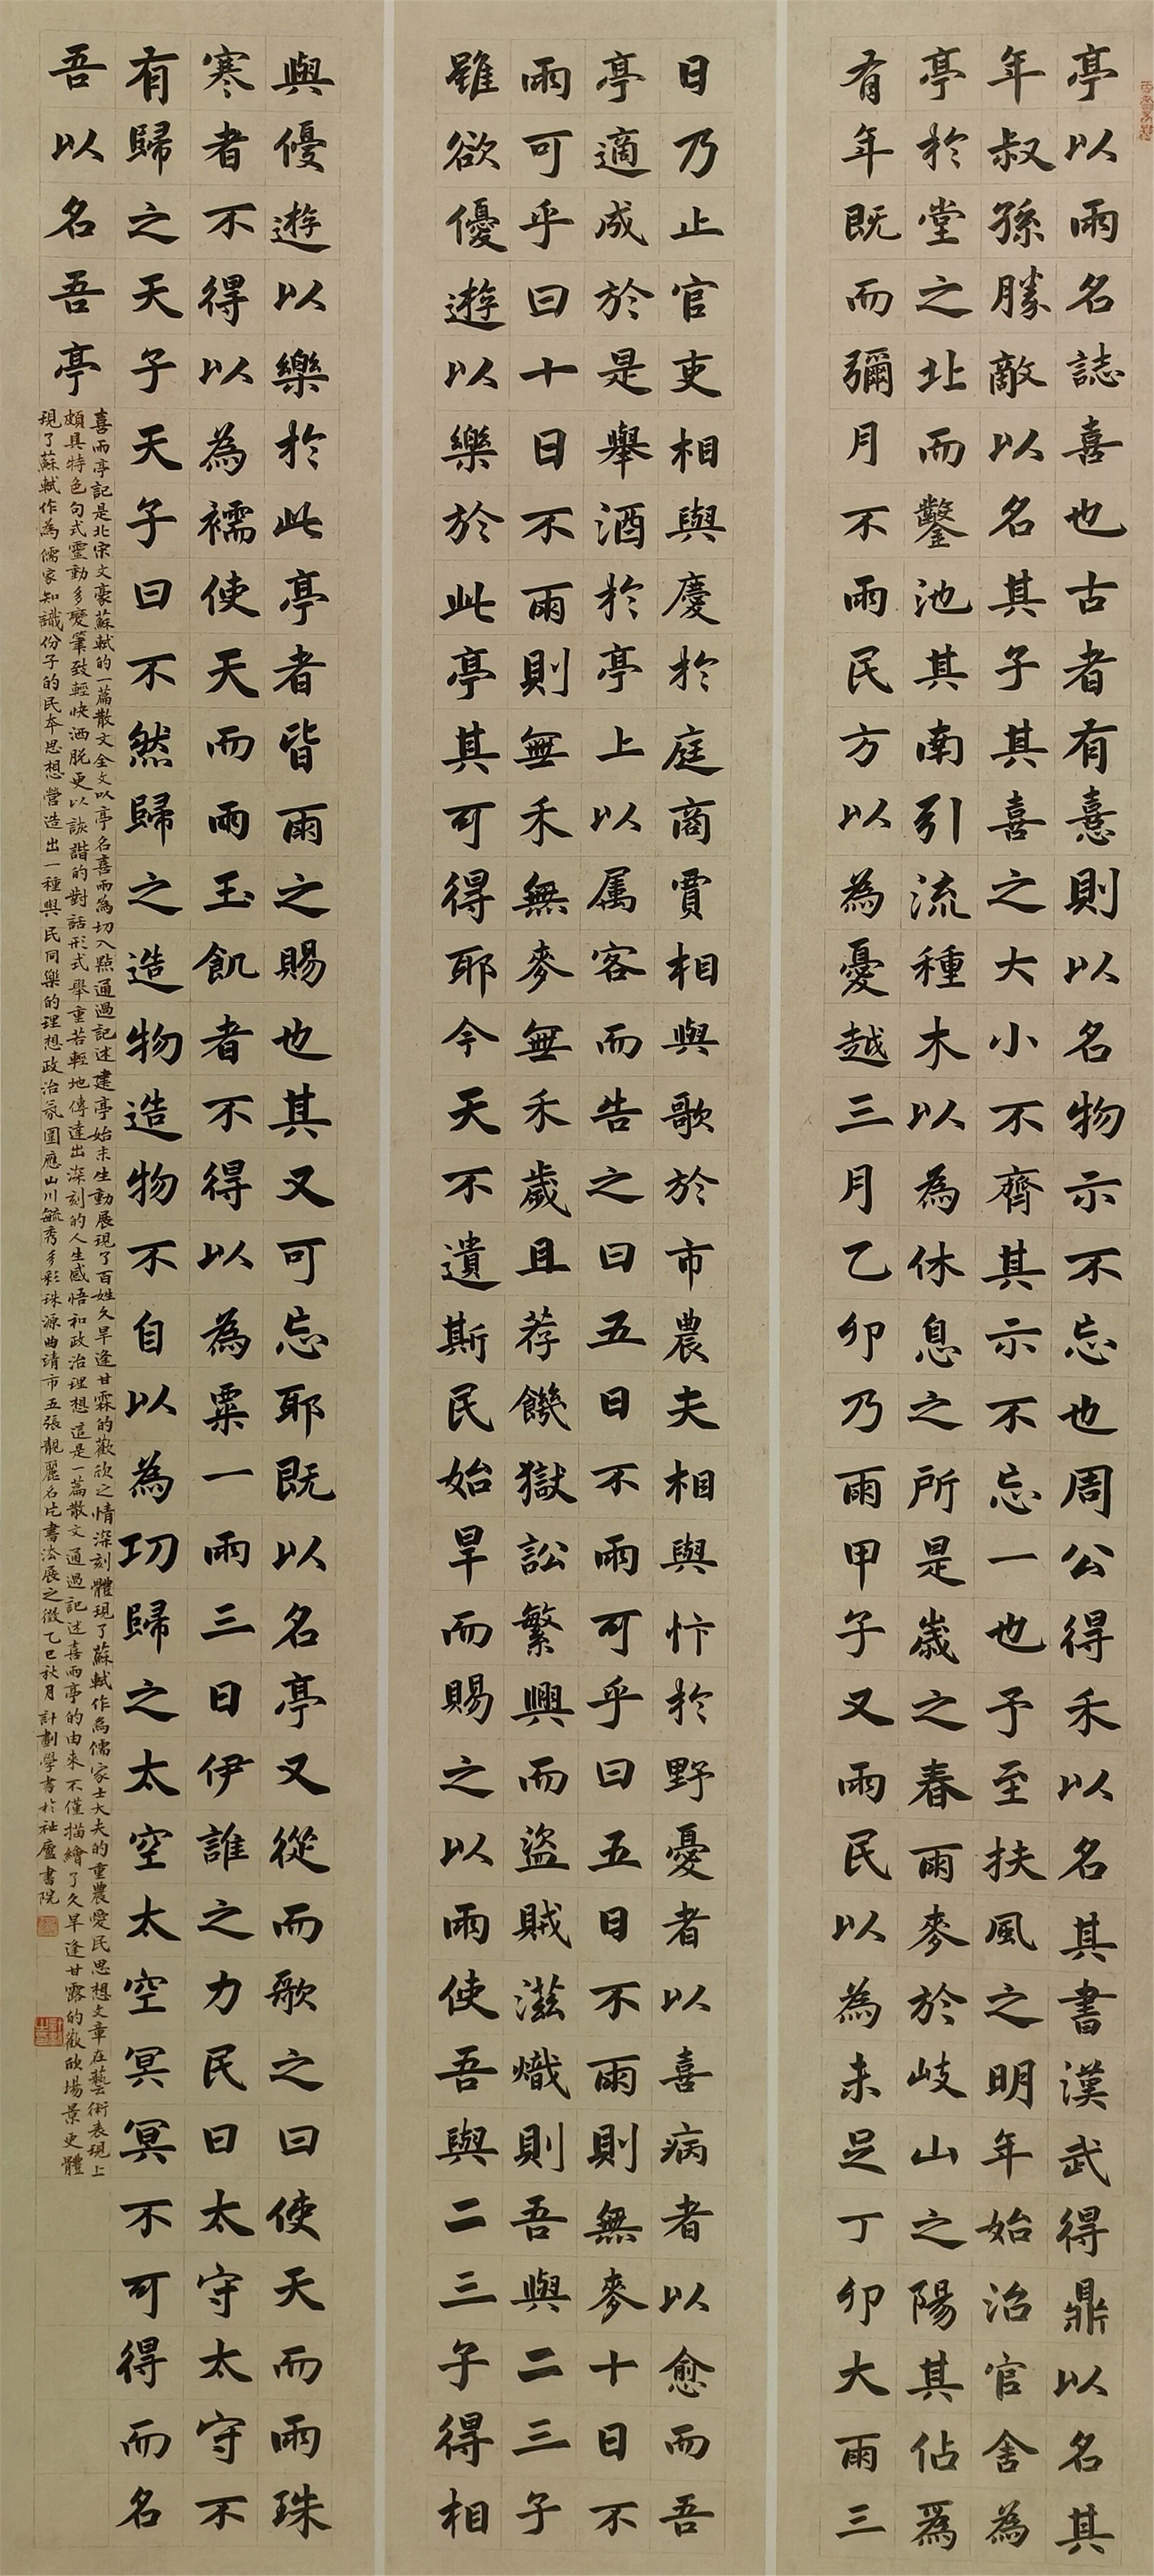 亭以雨名誌喜也古者有憙則以名物示不忘也周公得禾以名其書漢武得鼎以名其
年叔孫勝敵以名其子其喜之大小不齊其示不忘一也予至扶風之明年始治官舍為
亭於堂之北而鑿池其南引流種木以為休息之所是歲之春雨麥於岐山之陽其佔爲
有年既而彌月不雨民方以為憂越三月乙卯乃雨甲子又雨民以為未足丁卯大雨三
日乃止官吏相與慶於庭商賈相與歌於市農夫相與忭於野憂者以喜病者以愈而吾
亭適成於是舉酒於亭上以属客而告之曰五日不雨可乎曰五日不雨則無麥十日不
雨可乎曰十日不雨則無禾無麥無禾歲且荐饑獄訟繁興而盜賊滋熾則吾與二三子
雖欲優遊以樂於此亭其可得耶今天不遺斯民始旱而賜之以雨使吾與二三子得相
與優遊以樂於此亭者皆雨之賜也其又可忘耶既以名亭又從而歌之曰使天而雨珠
寒者不得以為襦使天而雨玉飢者不得以為粟一雨三日伊誰之力民曰太守太守不
有歸之天子天子曰不然歸之造物造物不自以為功歸之太空太空冥冥不可得而名
吾以名吾亭
喜雨亭記是北宋文豪蘇軾的一篇散文全文以亭名喜雨為切入點通過記述建亭始末生動展現了百姓久旱逢甘霖的歡欣之情深刻體現了蘇軾作為儒家士大夫的重農愛民思想文章在藝術表現上
頗具特色句式靈動多變筆致輕快洒脫更以詼諧的對話形式舉重若輕地傳達出深刻的人生感悟和政治理想這是一篇散文通過記述喜雨亭的由來不僅描繪了久旱逢甘露的歡欣場景更體
現了蘇軾作為儒家知識份子的民本思想營造出一種與民同樂的理想政治氛圍應山川毓秀多彩珠源曲靖市五張靚麗名片書法展之徵乙巳秋月計劃學書於祉廬書院